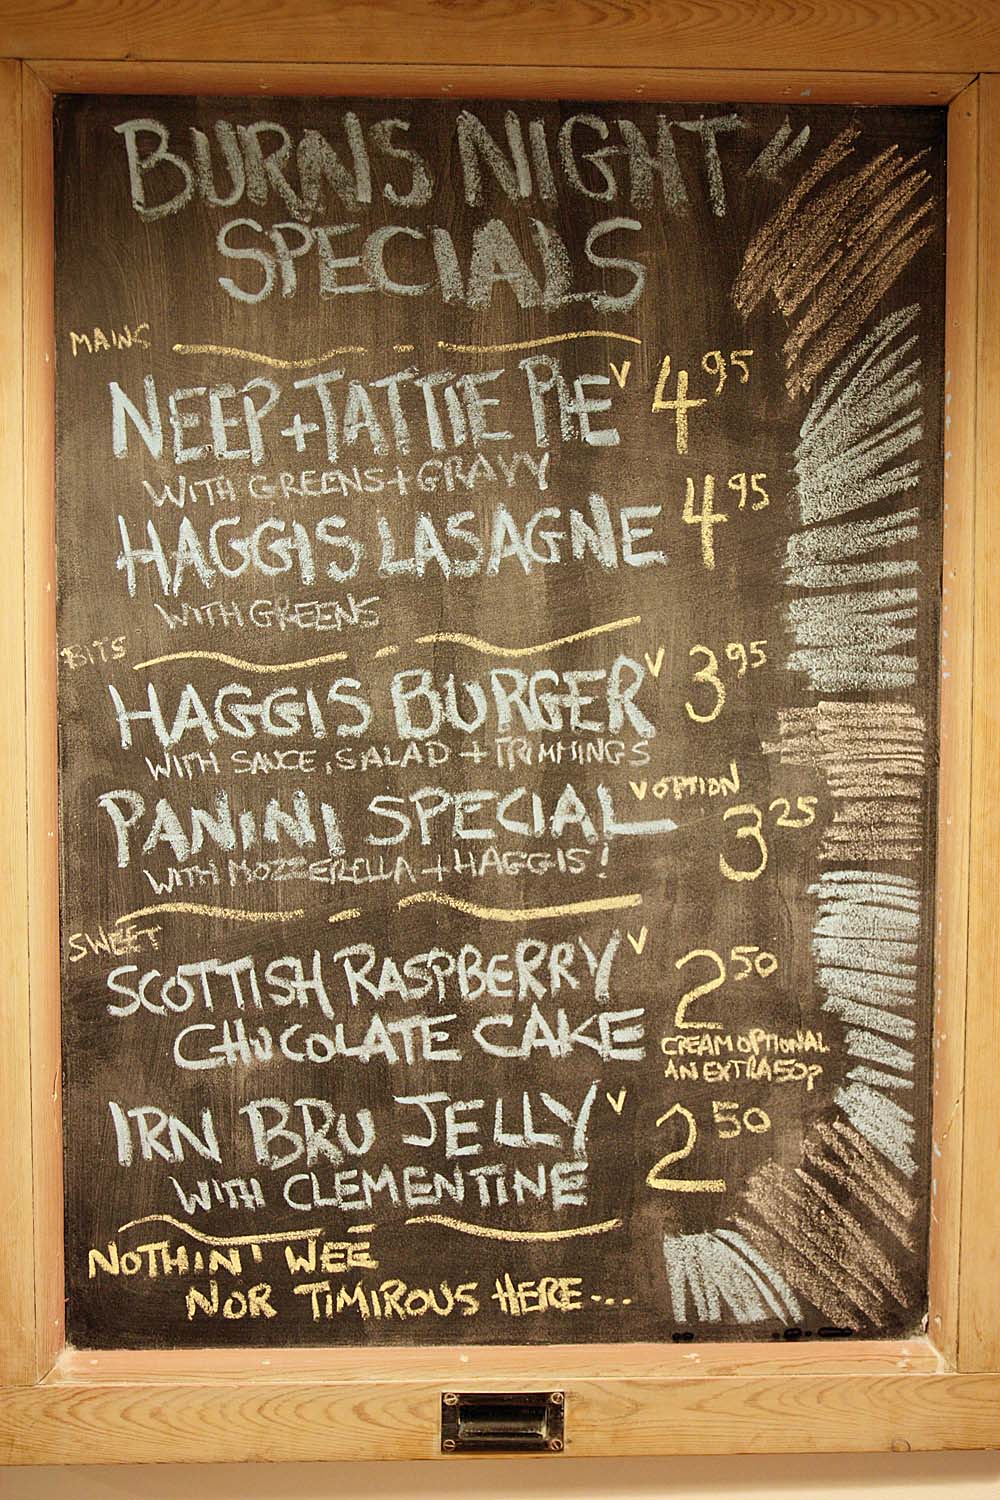 BURNS NIGHT
SPECIALS
MAINS
NEEP+TATTIE PIE V 4 95
WITH GREENS+GRAVY
HAGGIS LASAGNE 4 95
WITH GREENS
BITS
HAGGIS BURGER V 3 95
WITH SAUCE, SALAD + TRIMMINGS
PANINI SPECIAL V OPTION 3 25
WITH MOZZERELLA + HAGGIS!
SWEET
SCOTTISH RASPBERRY V 2 50
CHOCOLATE CAKE
CREAM OPTIONAL
AN EXTRA 50p
IRN BRU JELLY V 2 50
WITH CLEMENTINE
NOTHIN' WEE
NOR TIMIROUS HERE...